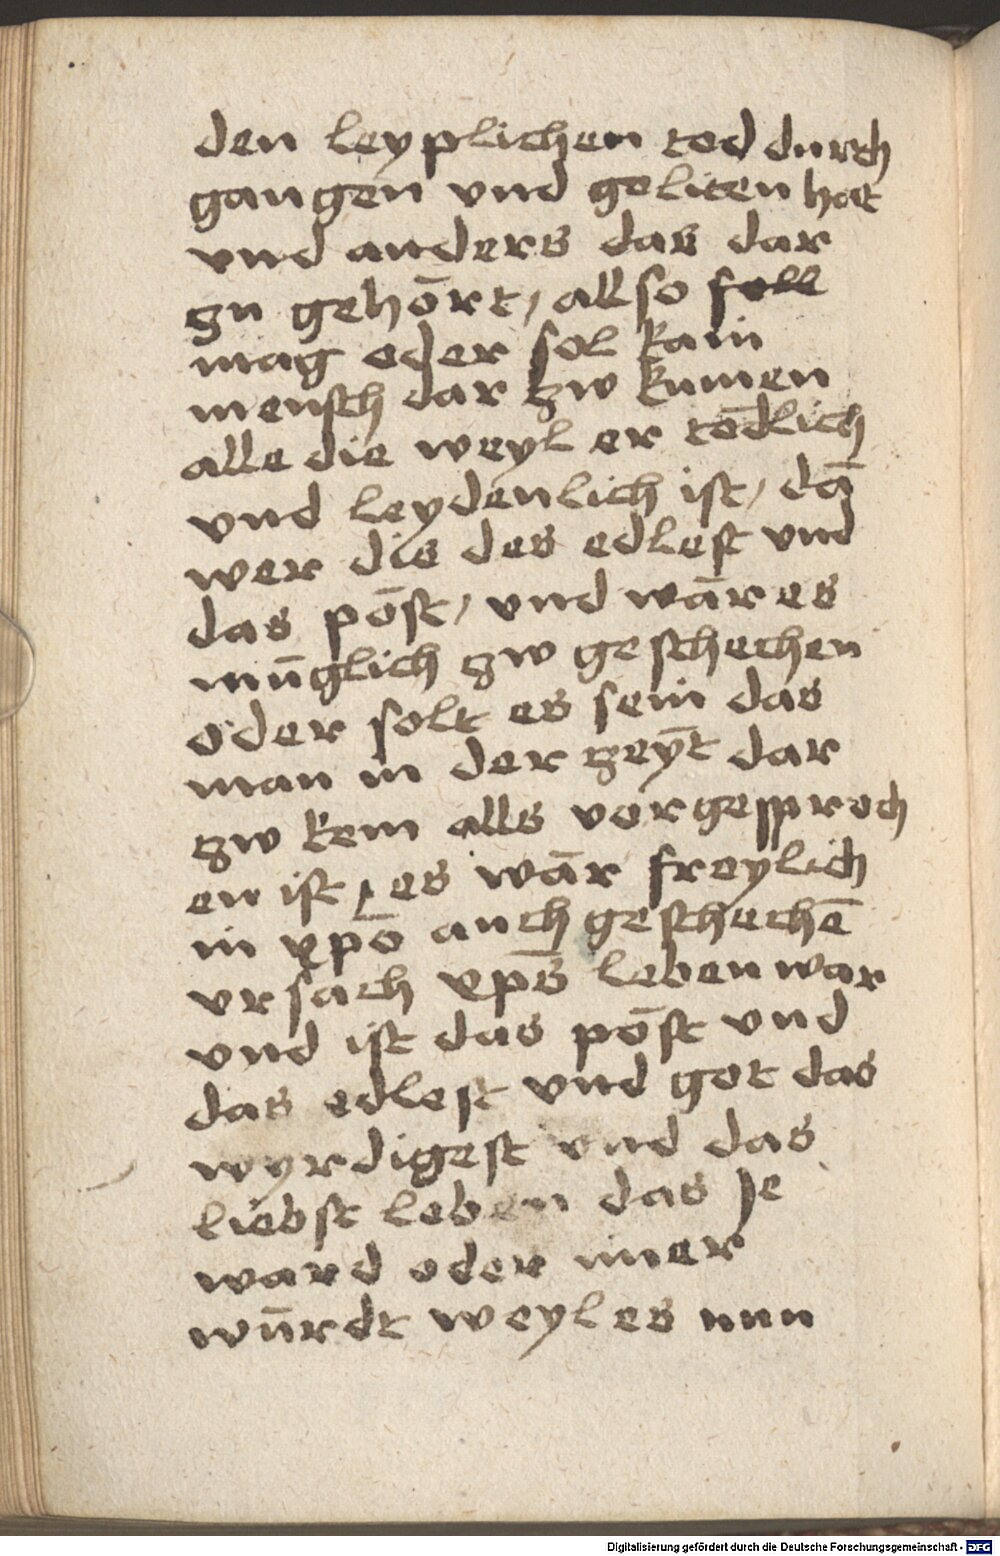 den leyplichen tod durch
gangen vnd geliten hat
vnd anders das dar
zu gehört, allso soll
mag oder sol kain
mensch dar zw kumen
alle die weyl er tödlich
vnd leydenlich ist, dā
wer dis des edlest vnd
das pöst, vnd wär es
müglich zw geschechen
oder solt es sein das
man in der zeyt dar
zw kem alls vorgesproch
en ist, es wär freylich
in xpō auch geschechē
vrsach xp̄s leben war
vnd ist das pöst vnd
das edlest vnd got das
wyrdigest vnd das
liebst leben das je
ward oder imer
würdt weyl es nun
Digitalisierung gefördert durch die Deutsche Forschungsgemeinschaft - DFG